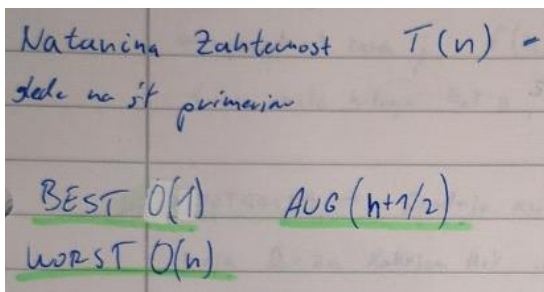 Natančna zahtevnost T(n) -
glede na št primerjav
BEST O(1) AVG (n+1/2)
WORST O(n)